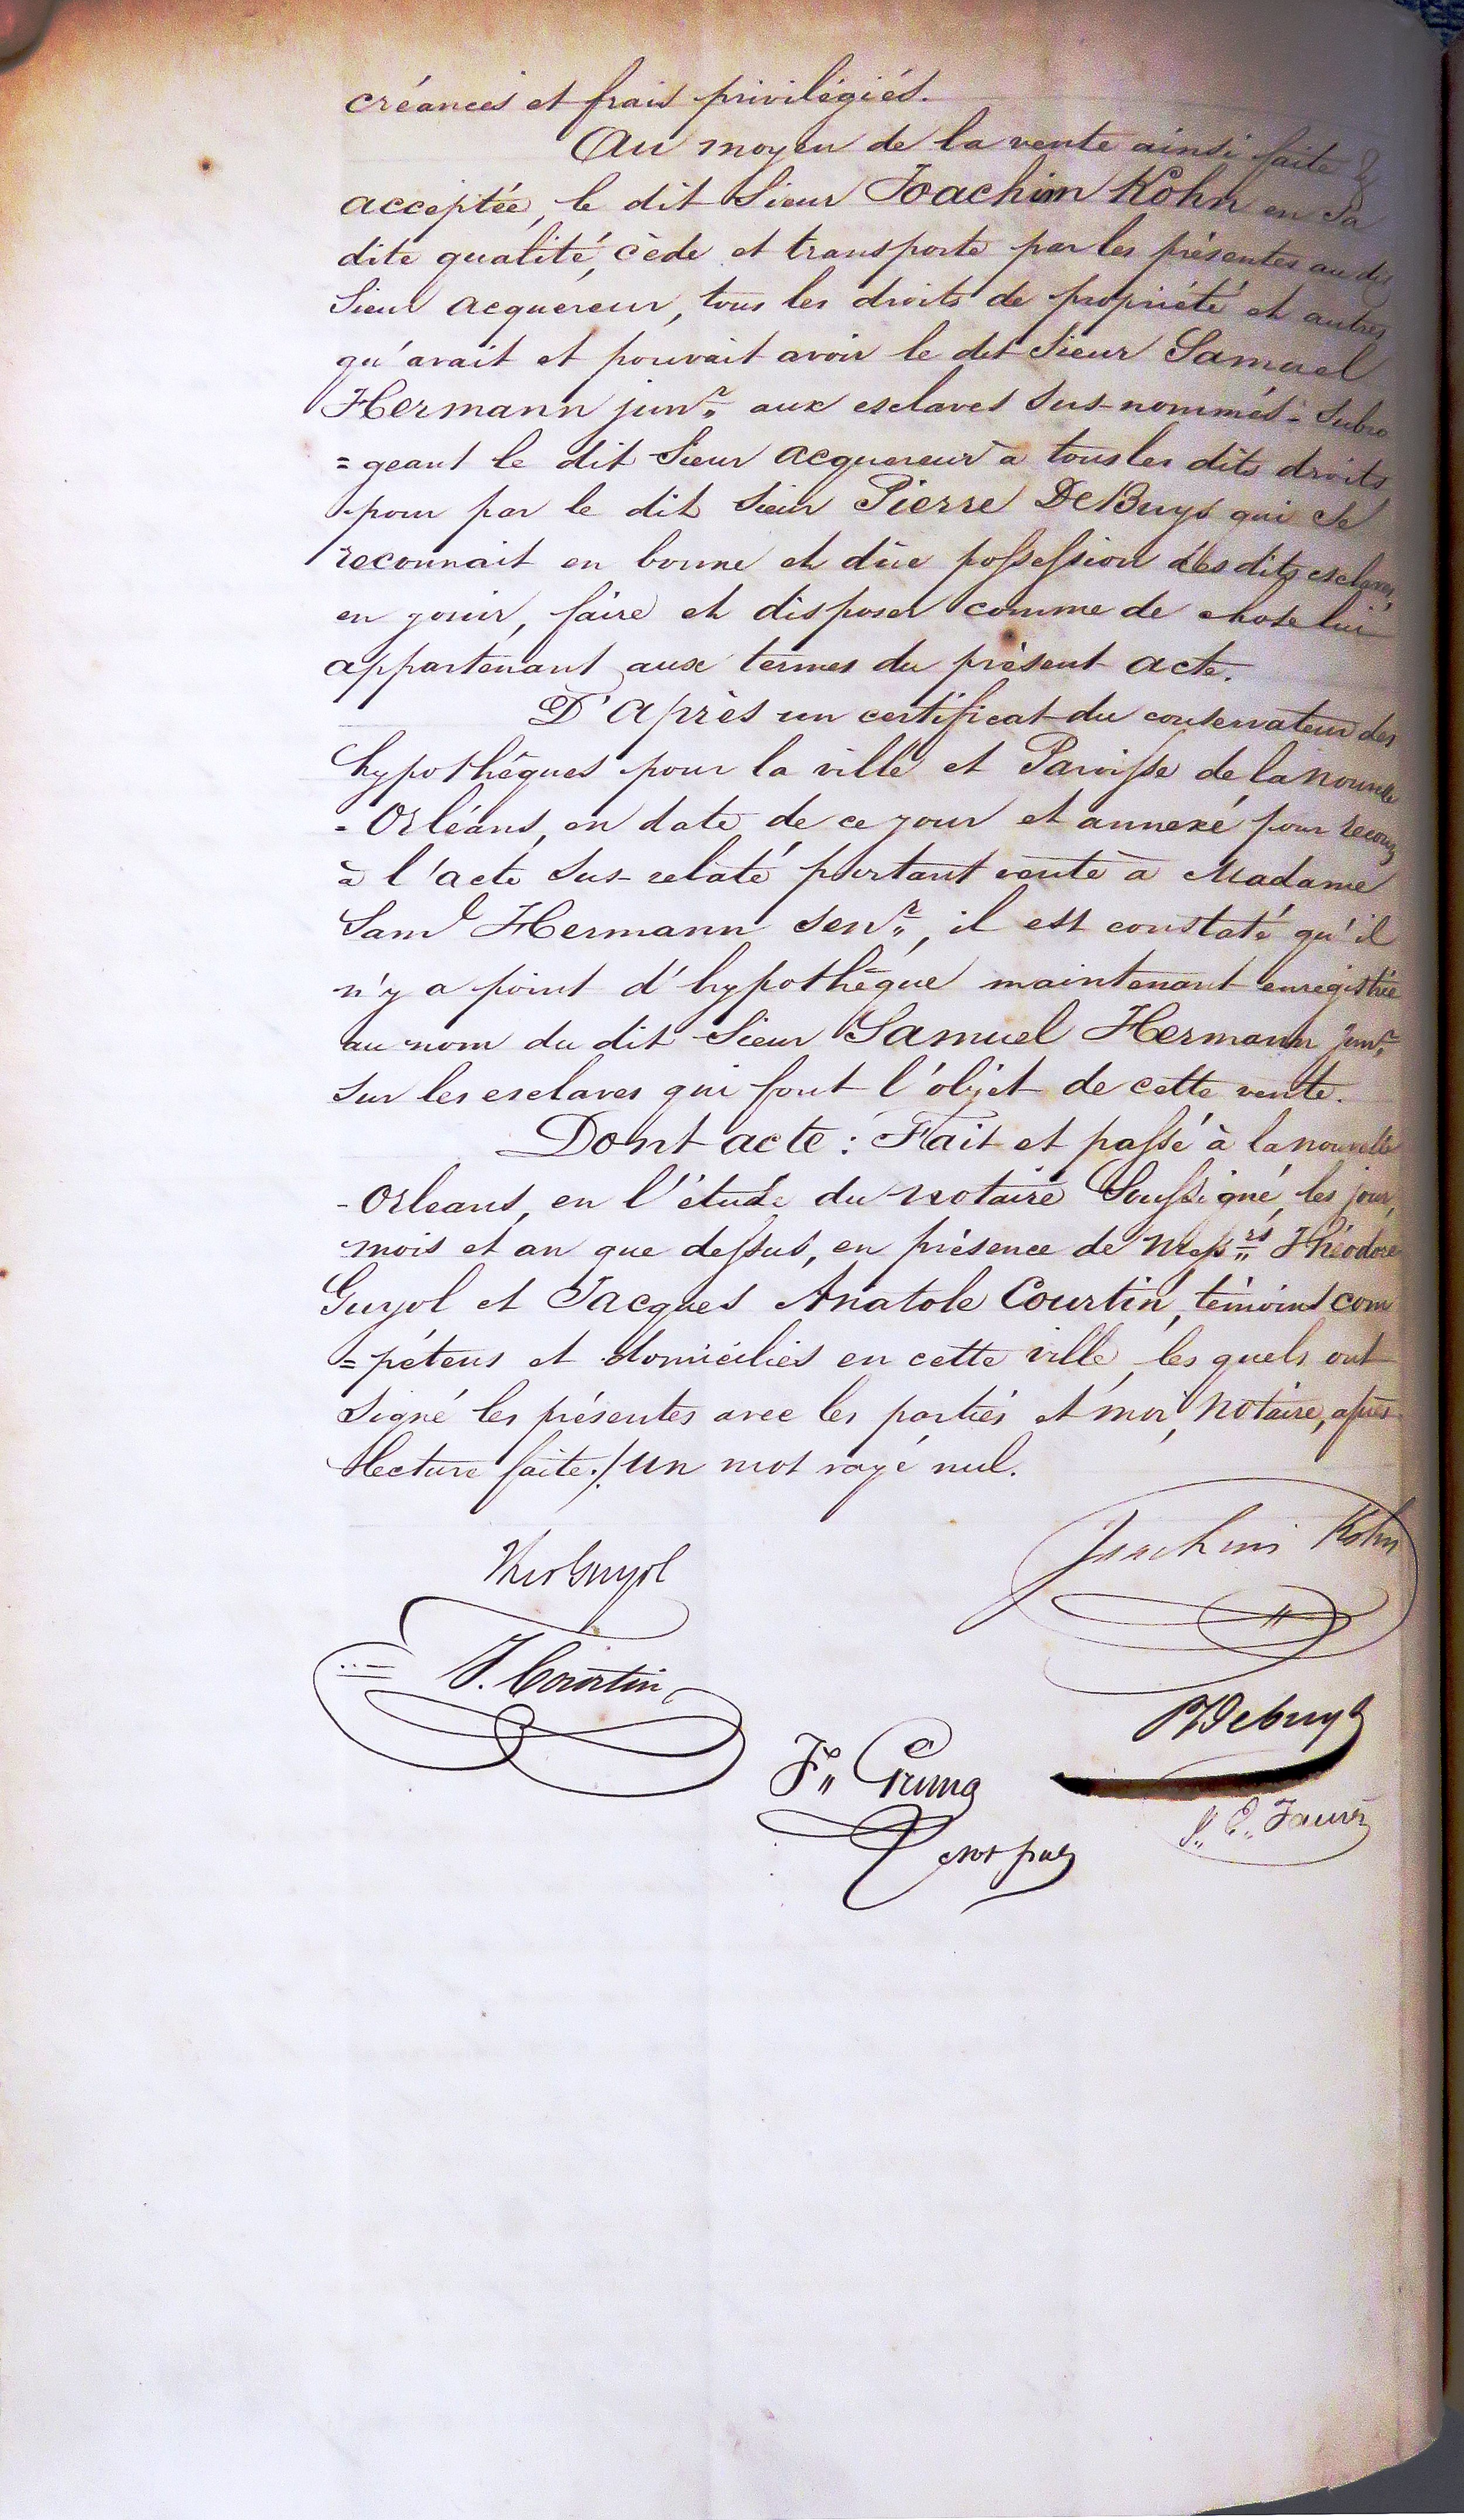 créances et frais privilégiés.
Au moyen de la vente ainsi faite &
acceptée, le dit Sieur Joachim Kohn en sa
dite qualité, cède et transporte par les présentes au dit
Sieur acquéreur, tous les droits de propriété et autres
qu'avait et pouvait avoir le dit Sieur Samuel
Hermann junr. aux esclaves sus-nommés: Subro
=geant le dit Sieur acquereur à tous les dits droits,
pour par le dit Sieur Pierre DeBuys qui se
reconnait en bonne et dûe possession des dits esclaves,
en jouir, faire et disposer comme de chose lui
appartenant aux termes du présent acte.
D'Après un certificat du conservateur des
hypothêques pour la ville et Paroisse de la Nouvelle
-Orléans, en date de ce jour et annexé pour recours
à l'acte sus-relaté portant vente à Madame
Saml Hermann Senr., il est constaté qu'il
n'y a point d'hypothêque maintenant enregistrée
au nom du dit Sieur Samuel Hermann junr.
sur les esclaves qui font l'objet de cette vente.
Dont acte: Fait et passé à la nouvelle
-Orleans, en l'étude du notaire Soussigné, les jour,
mois et an que dessus, en présence de Messrs Théodore
Guyol et Jacques Anatole Courtin, témoins com
=pétens et domiciliés en cette ville, les quels ont
signé les présentes avec les parties et moi, Notaire, après
lecture faite./. Un mot rayé nul.
Joachim Kohn
Theo Guyol
J. Courtin
P Debuys
F. Grima
Not pub